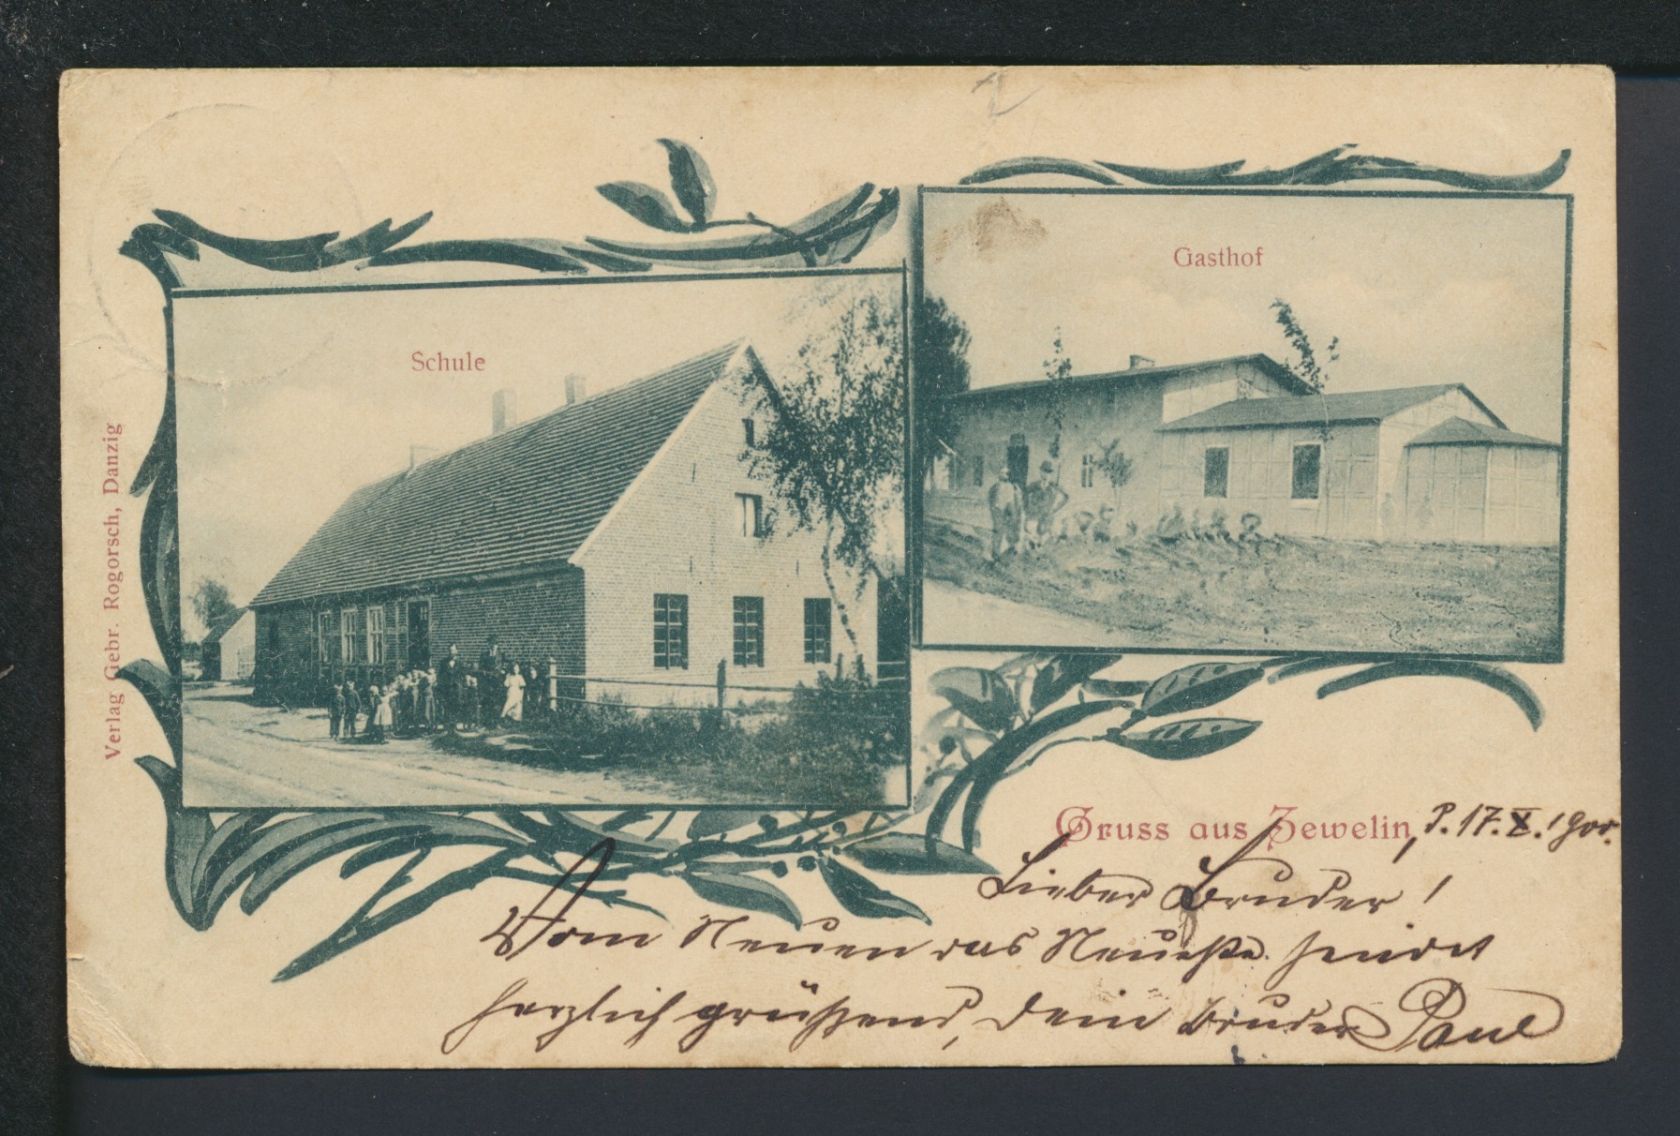 Schule
Gasthof
Verlag Gebr. Rogorsch, Danzig
Gruss aus Zewelin, P. 17. X. 1900.
Lieber Bruder!
Vom Neuen das Neueste sendet
herzlich grüßend, Dein Bruder Paul